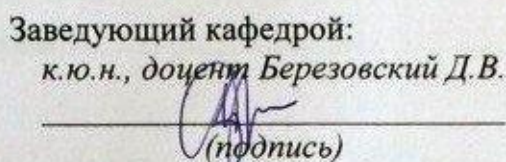 Заведующий кафедрой:
к.ю.н., доцент Березовский Д.В.
(подпись)